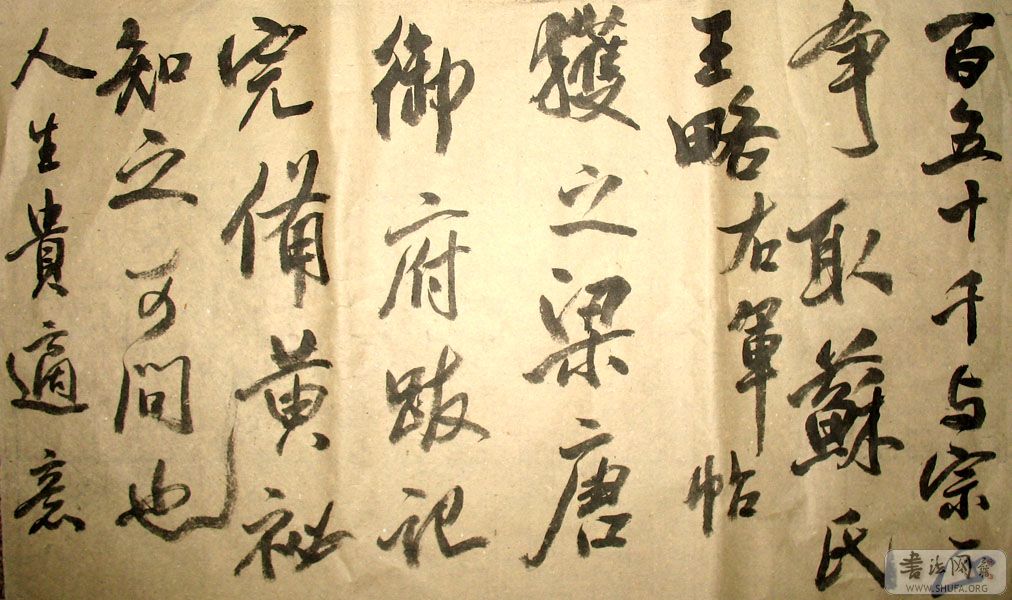 百五十千与宗正
争取蘇氏
王略右軍帖
獲之梁唐
御府跋記
完備黄祕
知之可問也
人生貴適意
書法网
WWW.SHUFA.ORG